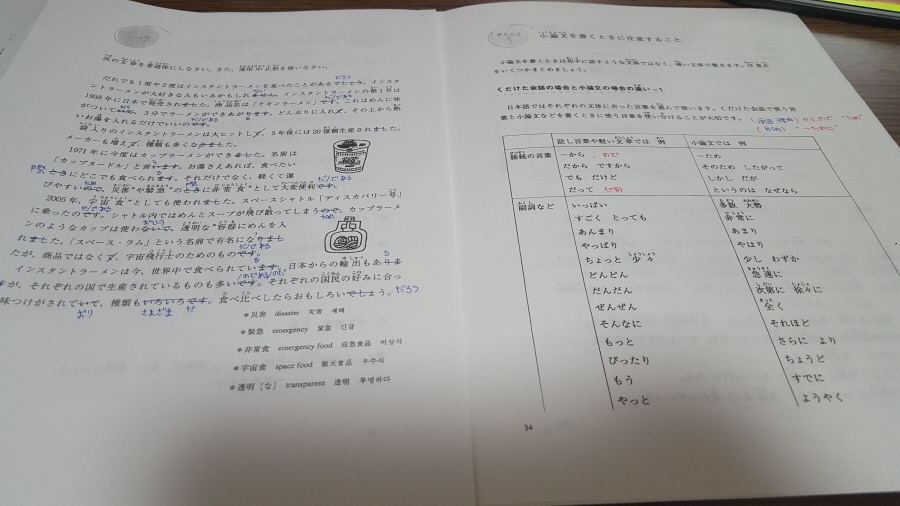 次の文章を普通体にしなさい。また、適当 中止形を使いなさい。
だれでも1度や2度はインスタントラーメンを食べたことがあるでしょう。インスタ
だろう
ントラーメンが大好きな人もいるかもしれません。インスタントラーメンの第1号は
1958年に日本で発売されました。商品名は「チキンラーメン」です。これはめんに味
がついていて、3分でラーメンができあがります。どんぶりに入れて、その上から熱
いお湯を入れるだけでいいのです。
袋入りのインスタントラーメンは大ヒットして、5年後には20億個生産されました。
メーカーも増えて、種類も多くなりました。
1971年に今度はカップラーメンができました。名前は
「カップヌードル」と言います。お湯さえあれば、食べたい
ときにどこでも食べられます。それだけでなく、軽くて運
びやすいので、災害*や緊急*のときに非常食*として大変便利です。
2005年、宇宙食*としても使われました。スペースシャトル「ディスカバリー号」
に乗ったのです。シャトル内ではめんとスープが飛び散ってしまうので、カップラーメ
ンのようなカップは使わないで、透明な*容器にめんを入
れました。「スペース・ラム」という名前で有名になりまし
たが、商品ではなくて、宇宙飛行士のためのものです。
インスタントラーメンは今、世界中で食べられています。日本からの輸出もありま
が、それぞれの国で生産されているものも多いです。それぞれの国民の好みに合っ
味つけがされていて、種類もいろいろです。食べ比べしたらおもしろいでしょう。
だろう
おり
さまざま
だ
*災害 disaster 灾害 재해
*緊急 emergency 紧急 긴급
*非常食 emergency food 应急食品 비상식
*宇宙食 space food 航天食品 우주식
*透明[な] transparent 透明 투명하다
小論文を書くときに注意すること
小論文を書くときは相手に話すような文体ではなく、硬い文体で書きます。注意点
をいくつかまとめましょう。
くだけた会話の場合と小論文の場合の違い－1
日本語ではそれぞれの文体に合った言葉を選んで使います。くだけた会話で使う言
葉と小論文などを書くときに使う言葉を使い分けることが大切です。
話し言葉や軽い文章では 例
小論文では 例
接続の言葉
～から
ので
～ため
だから ですから
そのため したがって
でも だけど
しかし だが
だって
というのは なぜなら
副詞など
いっぱい
多数 大勢
すごく とっても
非常に
あんまり
あまり
やっぱり
やはり
ちょっと 少々
少し わずか
どんどん
急速に
だんだん
次第に 徐々に
ぜんぜん
全く
そんなに
それほど
もっと
さらに より
ぴったり
ちょうど
もう
すでに
やっと
ようやく
34